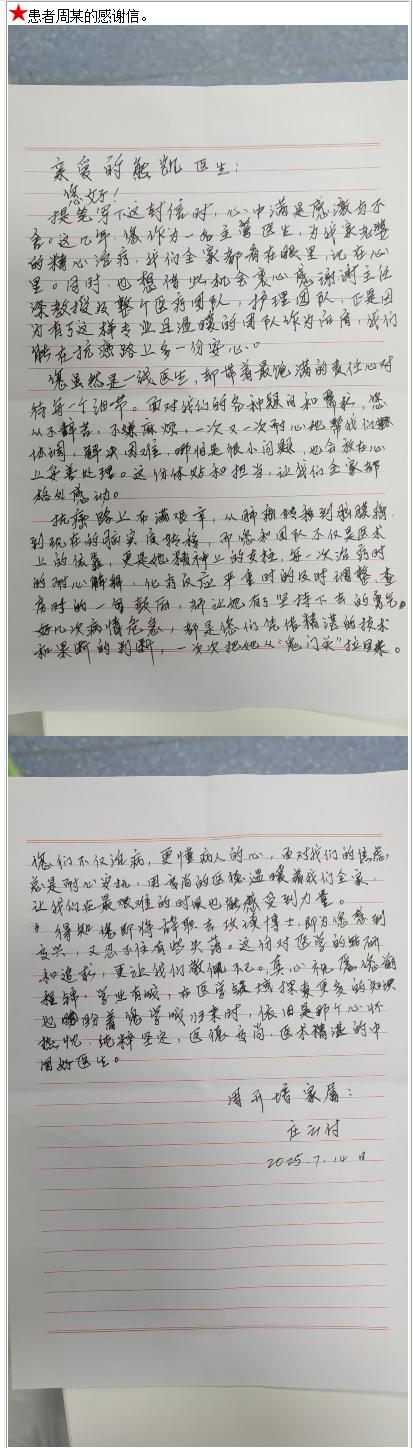 ★患者周某的感谢信。
亲爱的熊凯医生：
您好！
提笔写下这封信时，心中满是感激与不
舍。这几年，您作为一名主管医生，为我家老婆
的精心治疗，我们全家都看在眼里，记在心
里。同时，也想借此机会衷心感谢谢主任
深教授及整个医疗团队，护理团队，正是因
为有了这样专业且温暖的团队作为后盾，我们
能在抗癌路上多一份安心。
您虽然是一线医生，却带着最饱满的责任心对
待每一个细节。面对我们的各种疑问和需求，您
从不辞苦，不嫌麻烦，一次又一次耐心地帮我们
协调，解决困难，哪怕是很小问题，也会放在心
上妥善处理。这份体贴和担当，让我们全家都
格外感动。
抗癌路上布满艰辛，从肺癌转移到脑膜癌，
到现在的脑实质转移，而您和团队不仅是医术
上的依靠，更是她精神上的支柱，每一次治疗时
的耐心解释，化疗反应严重时的及时调整，查
房时的一句鼓励，都让她有了坚持下去的勇气。
好几次病情危急，都是您们凭借精湛的技术
和果断的判断，一次次把她从“鬼门关”拉回来。
您们不仅治病，更懂病人的心，面对我们的焦虑，
总是耐心安抚，用高尚的医德温暖着我们全家，
让我们在最艰难的时候也能感受到力量。
得知您即将辞职去攻读博士，即为您感到
高兴，又忍不住有些失落。这份对医学的钻研
和追求，更让我们敬佩不已。真心祝愿您前
程锦，学业有成，在医学领域探索更多的知识
也盼着您学成归来时，依旧是那个心怀
热忱，纯粹坚定，医德高尚，医术精湛的中
国好医生。
周开 家属：
庄
2025.7.14日